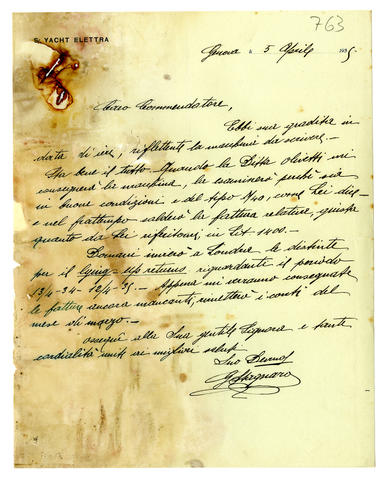 763
S. YACHT ELETTRA
Genova, 5 Aprile 1935
Caro Commendatore,
Ebbi sua gradita in
data di ieri, riflettente la macchina da scrivere.-
Sta bene il tutto. Quando la Ditta Olivetti mi
consegnerà la macchina, la esaminerò perchè sia
in buone condizioni e del tipo M40, come Lei dice
e nel frattempo salderò la fattura relativa, giusta
quanto da Lei riferitomi, in Lit 1400.-
Domani invierò a Londra le distinte
per il returns riguardante il periodo
13/4-34 - 12/4-35.- Appena mi verranno consegnate
le fatture ancora mancanti, metterò i conti del
mese di marzo.-
Ossequi alla Sua gentile Signora e tante
cordialità uniti ai migliori saluti
Suo
GStagnaro